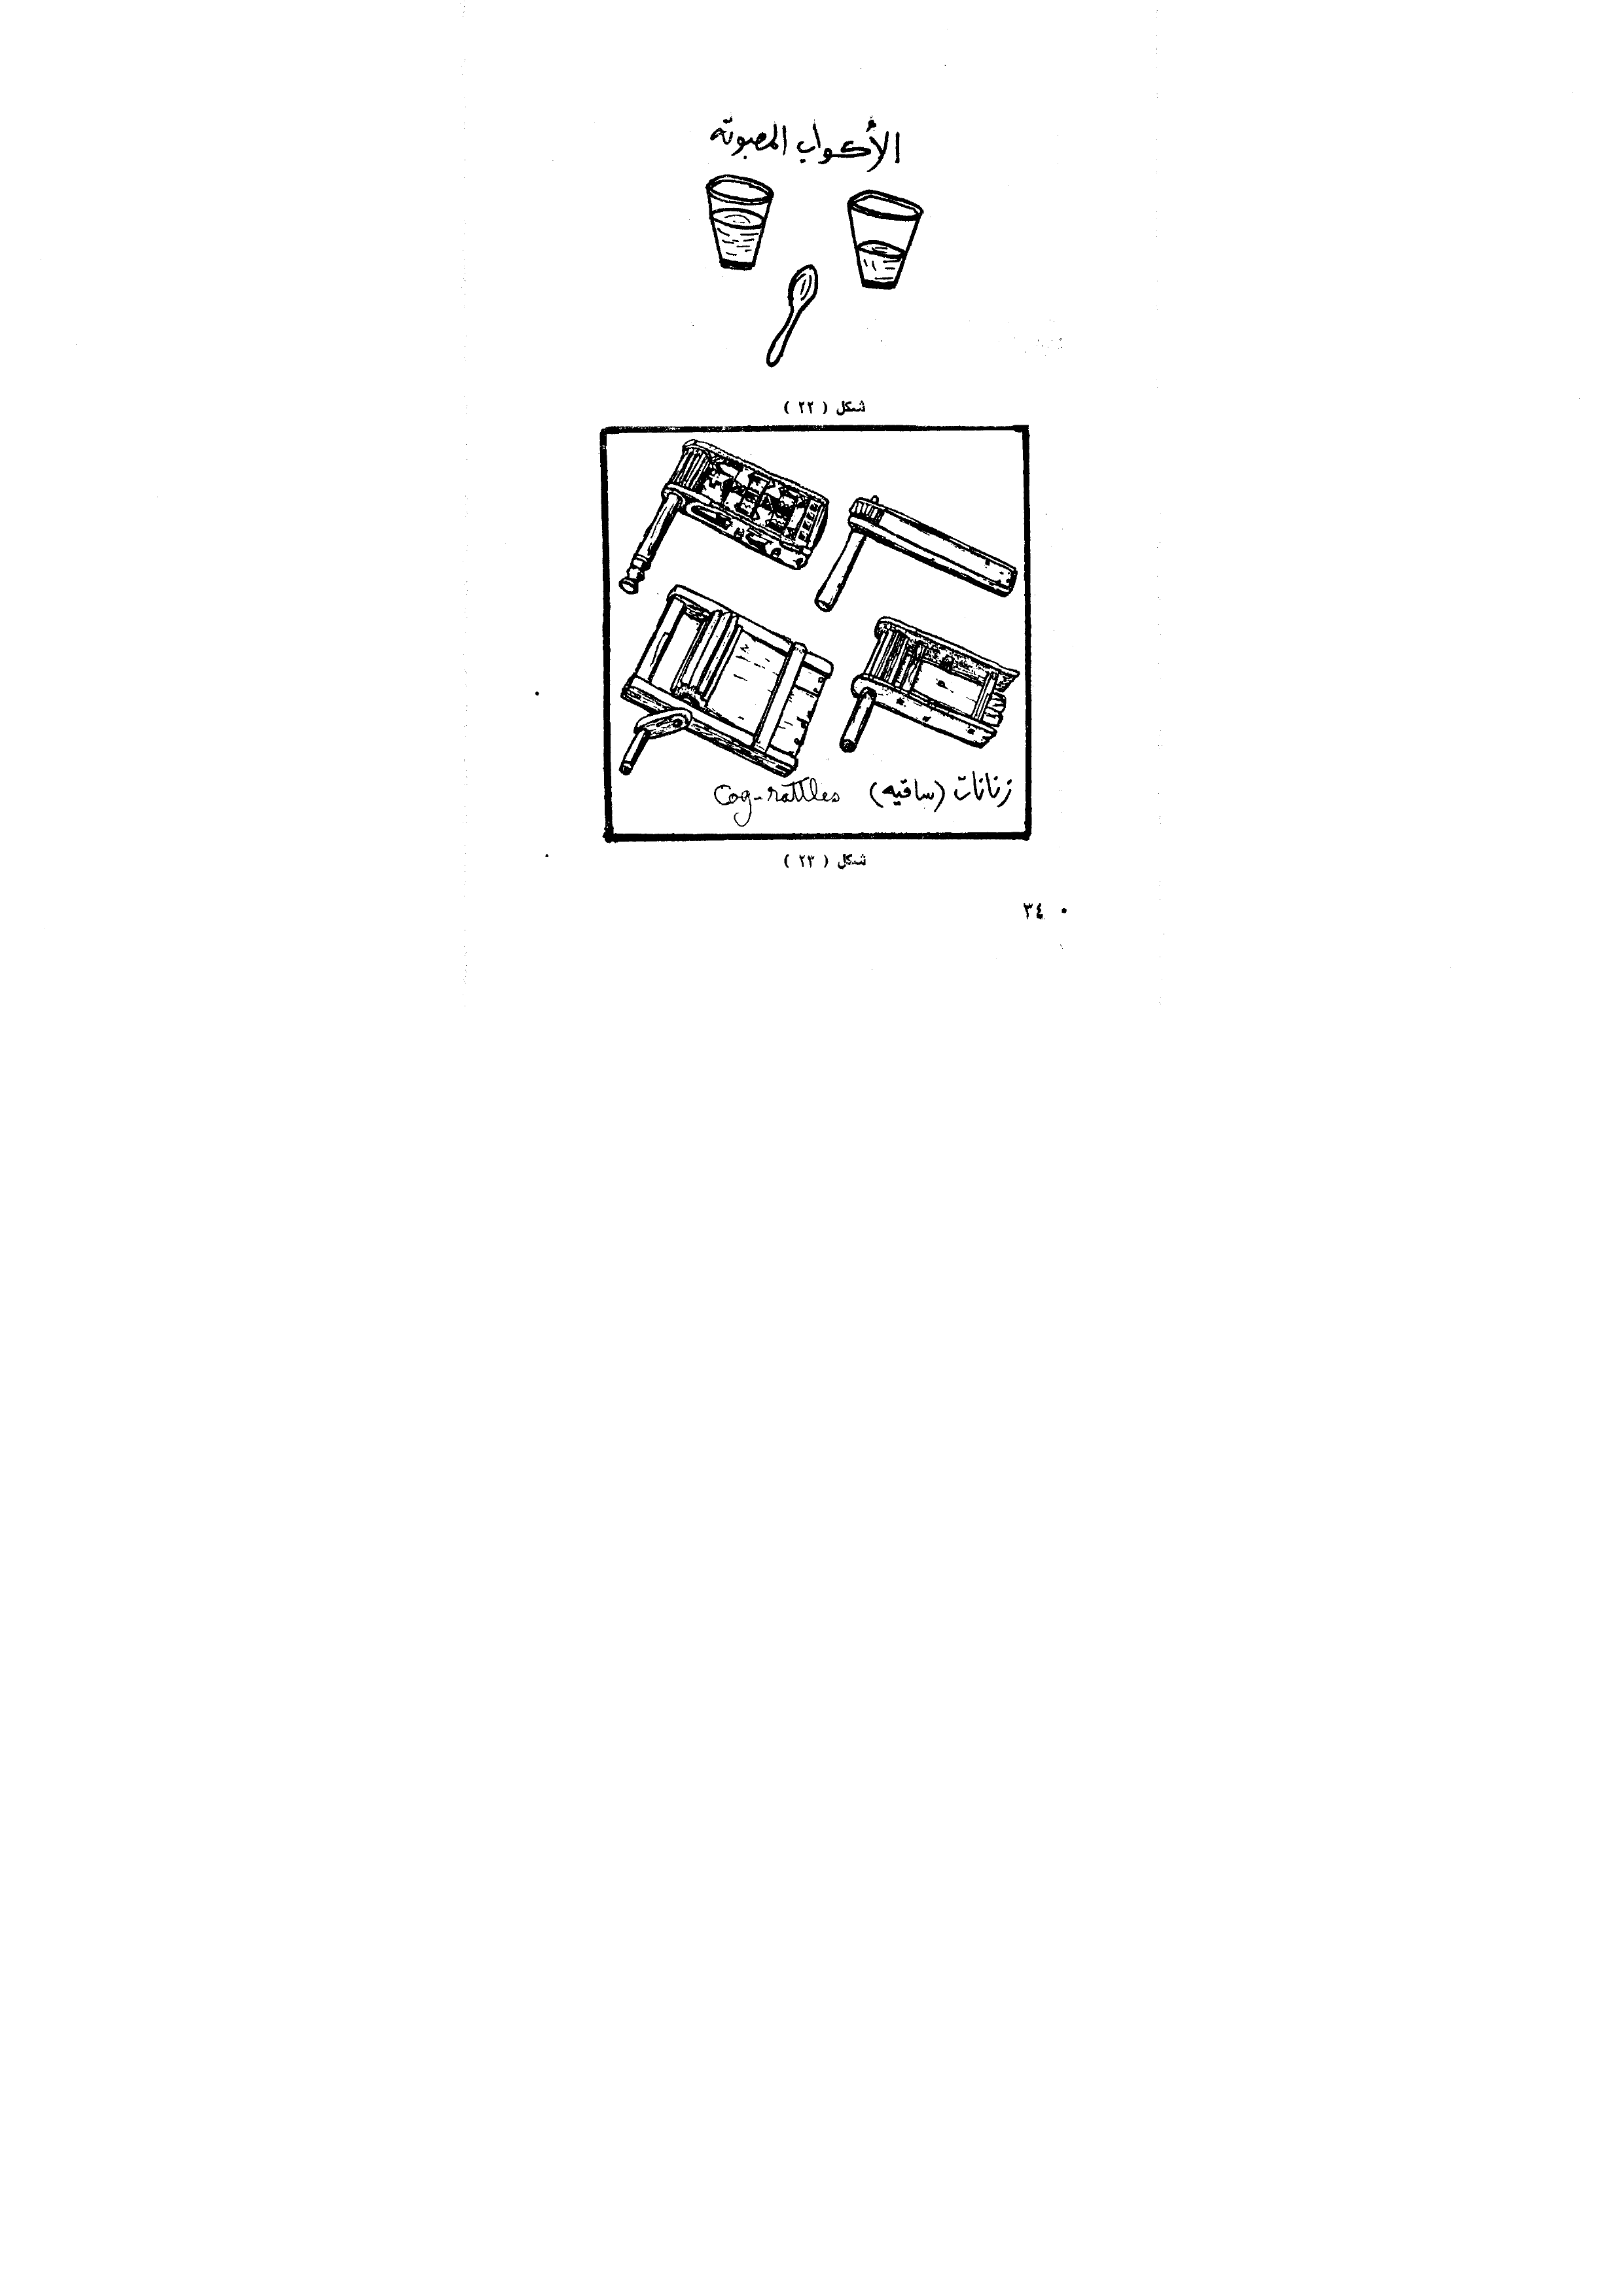 الأكواب المصوته
شكل ( ٢٢ )
زنانات (ساقيه) Cog-rattles
شكل ( ٢٣ )
٣٤